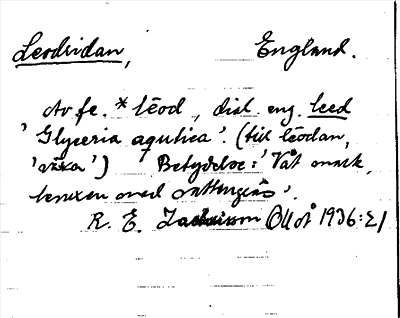 Leodridan, England.
Av fe. *lēod, dial. eng. leed
'Glyceria aqutica'. (till lēodan,
'växa') Betydelse: 'Våt mark,
bevuxen med vattengräs'.
R. E. Zachrisson OUOÅ 1936:21